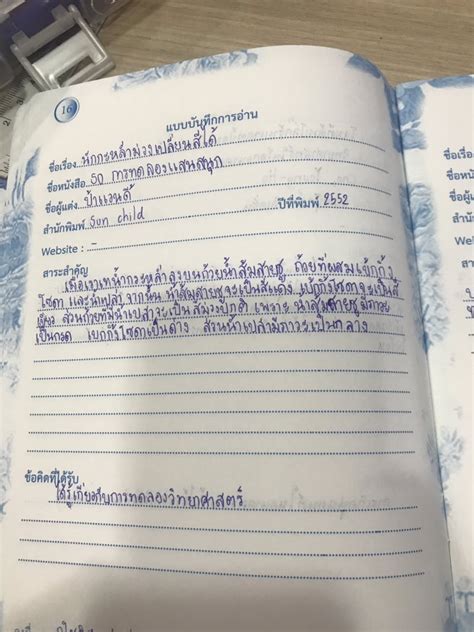 16
แบบบันทึกการอ่าน
ชื่อเรื่อง น้ำกะหล่ำม่วงเปลี่ยนสีได้
ชื่อหนังสือ 50 การทดลองแสนสนุก
ชื่อผู้แต่ง ป้าแวนดี้
สำนักพิมพ์ Sun child ปีที่พิมพ์ 2552
Website : -
สาระสำคัญ
เมื่อเราเทน้ำกะหล่ำลงบนถ้วยน้ำส้มสายชู ถ้วยที่ผสมเบ้กกิ้ง
โซดา และน้ำเปล่า จากนั้น น้ำส้มสายชูจะเป็นสีแดง เบ้กกิ้งโซดาจะเป็นสี
เขียว ส่วนถ้วยที่มีน้ำเปล่าจะเป็น สีม่วงปกติ เพราะ น้ำส้มสายชูมีภาวะ
เป็นกรด เบกกิ้งโซดาเป็นด่าง ส่วนน้ำเปล่ามีภาวะเป็นกลาง
ข้อคิดที่ได้รับ
ได้รู้เกี่ยวกับการทดลองวิทยาศาสตร์